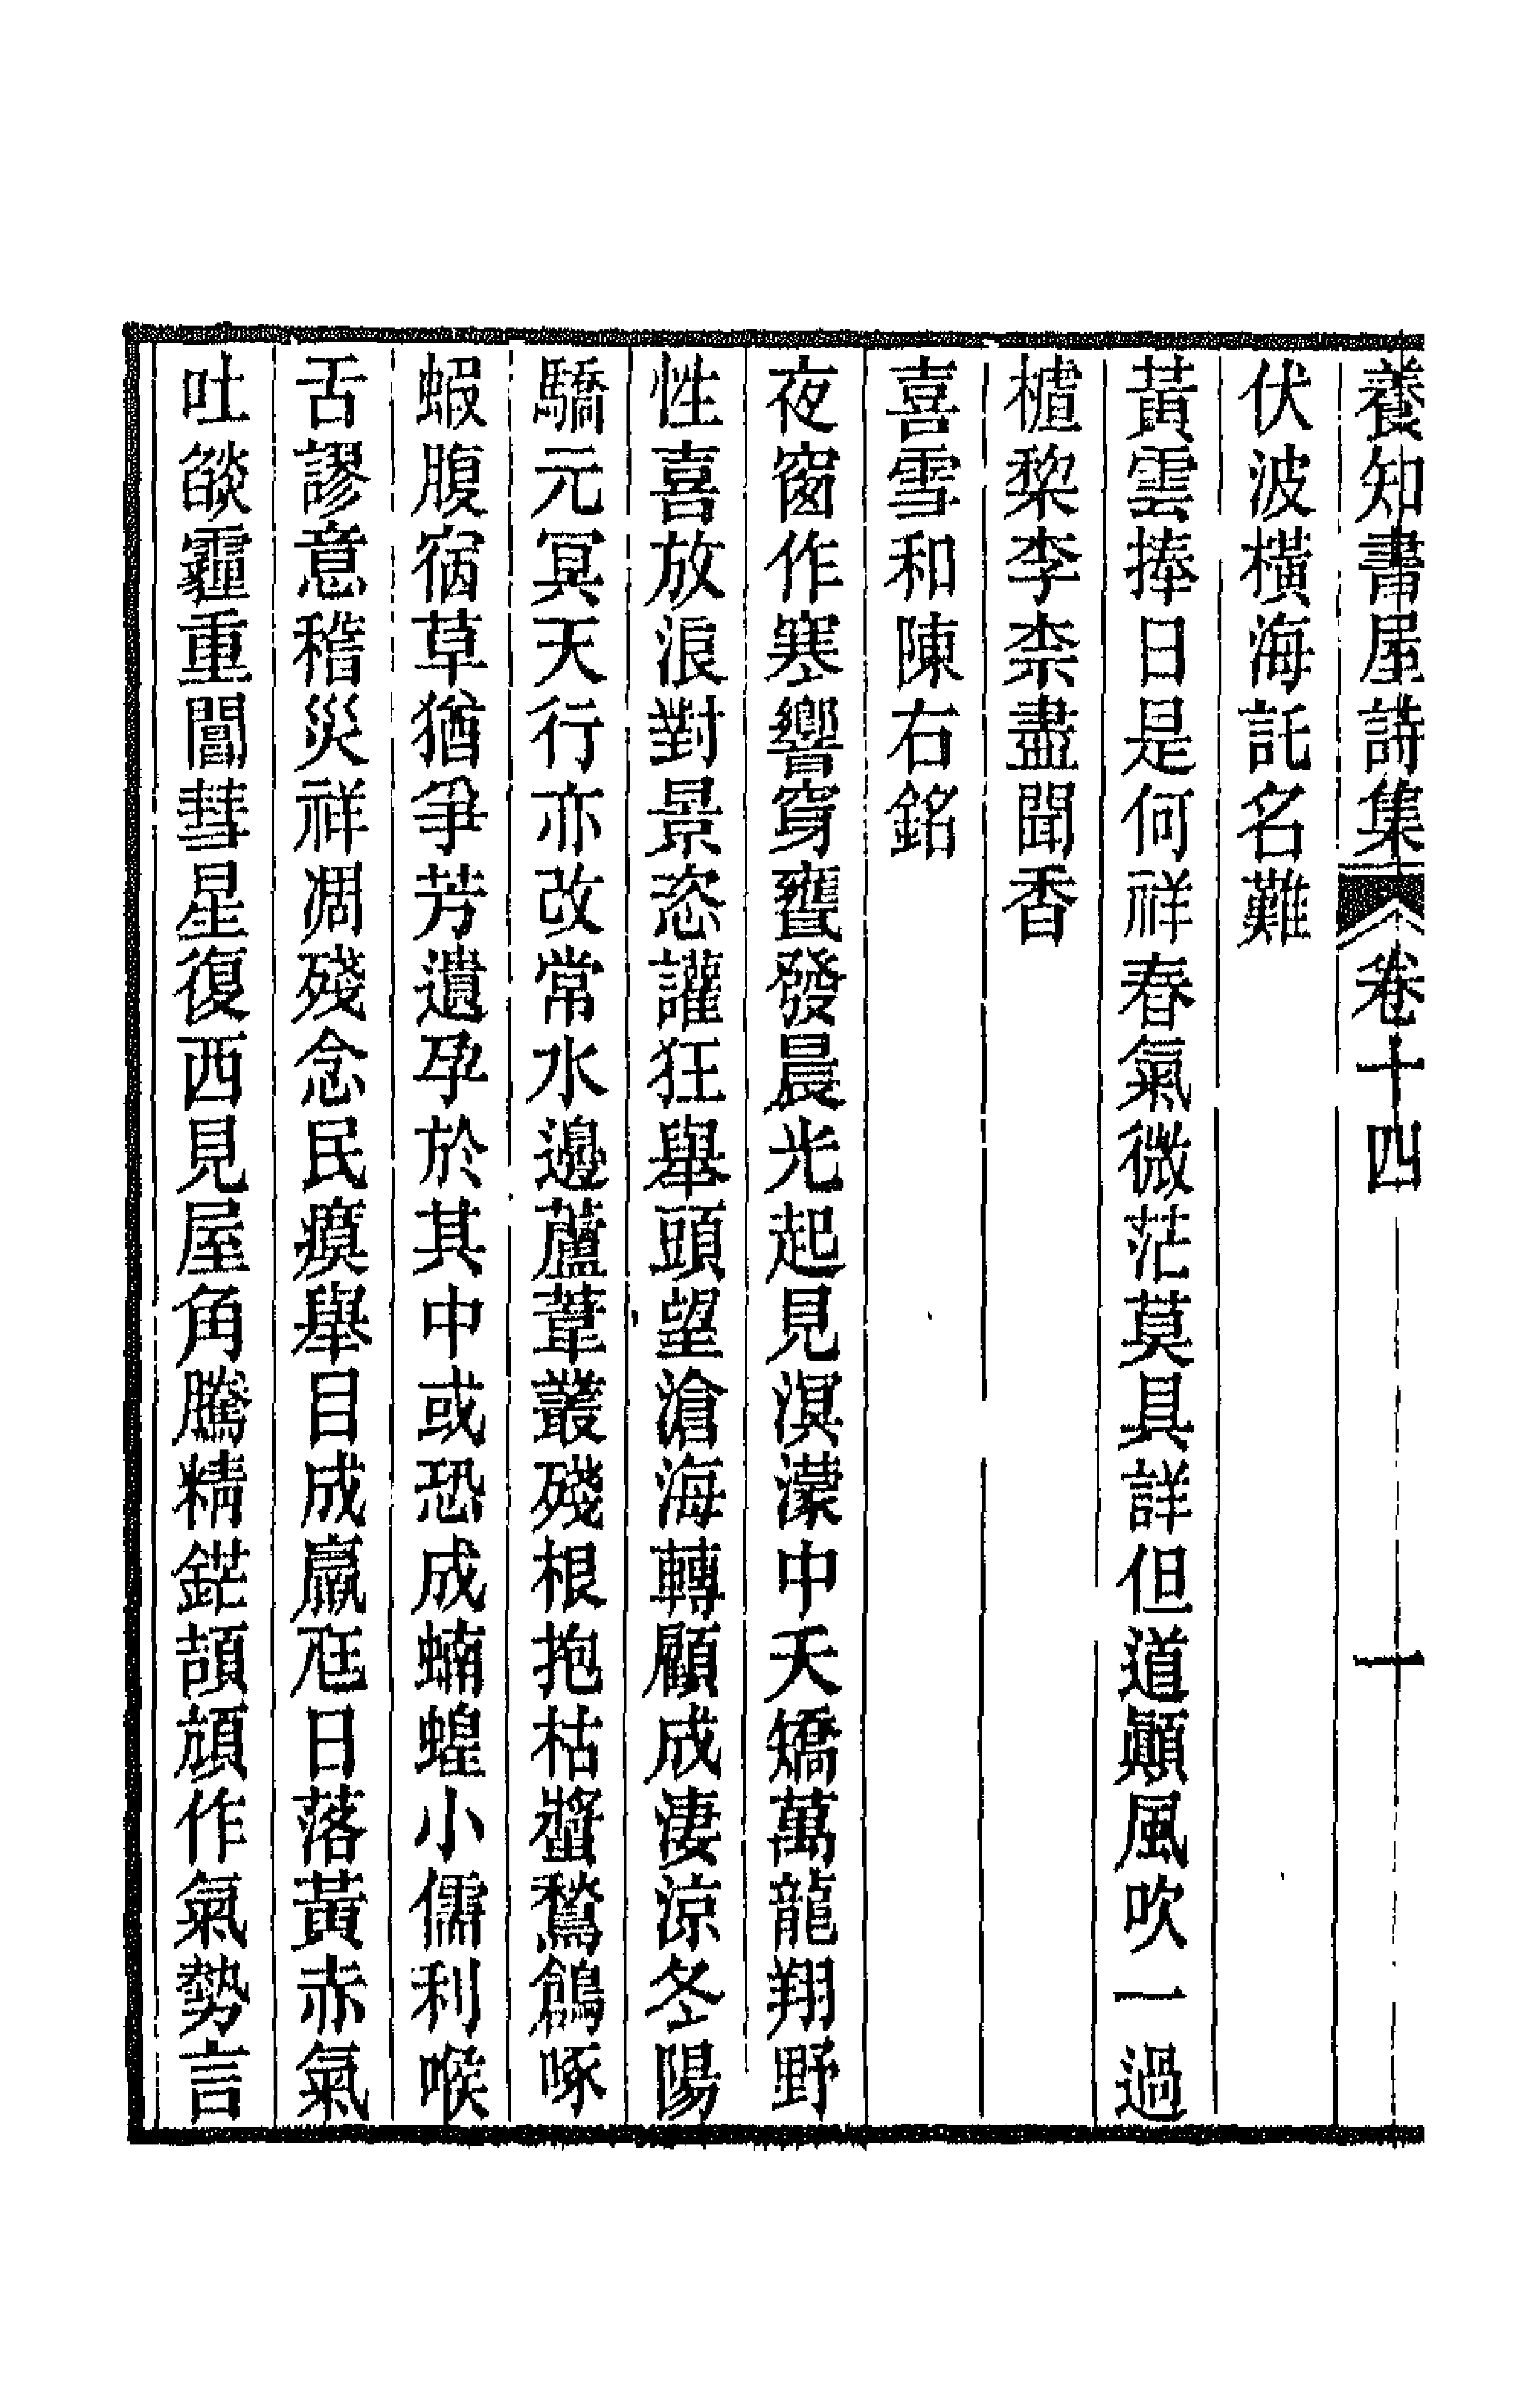 養知書屋詩集 卷十四 一
伏波橫海託名難
黃雲捧日是何祥春氣微茫莫具詳但道顚風吹一過
樝棃李柰盡聞香
喜雪和陳右銘
夜窗作寒響穿甕發晨光起見溟濛中夭矯萬龍翔野
性喜放浪對景恣讙狂舉頭望滄海轉顧成淒涼冬陽
驕元冥天行亦改常水邊蘆葦叢殘根抱枯螿鶖鶬啄
蝦腹宿草猶爭芳遺孕於其中或恐成蝻蝗小儒利喉
舌謬意稽災祥凋殘念民瘼舉目成羸尫日落黃赤氣
吐燄霾重閶彗星復西見屋角騰精鋩頡頏作氣勢言